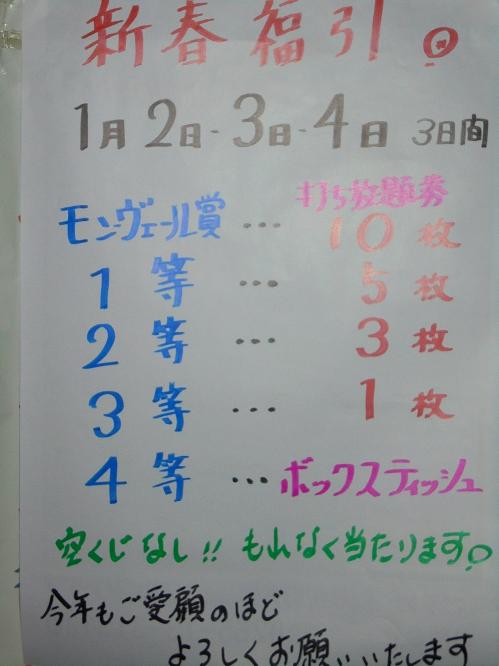 新春福引。
1月2日-3日-4日 3日間
打ち放題券
モンヴェール賞…10枚
1等…5枚
2等…3枚
3等…1枚
4等…ボックスティッシュ
空くじなし!!もれなく当たります。
今年もご受顧のほど
よろしくお願いいたします